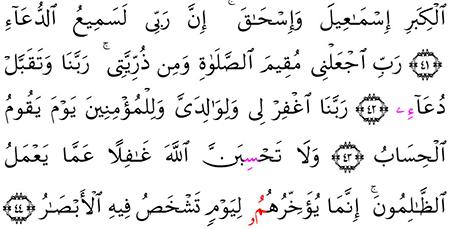 اَ۬لْكِبَرِ إِسْمَٰعِيلَ وَإِسْحَٰقَ ۚ إِنَّ رَبِّى لَسَمِيعُ اُ۬لدُّعَآءِ
﴿٤١﴾ رَبِّ اِ۪جْعَلْنِى مُقِيمَ اَ۬لصَّلَوٰةِ وَمِن ذُرِّيَّتِى ۚ رَبَّنَا وَتَقَبَّلْ
دُعَآءِۦ ﴿٤٢﴾ رَبَّنَا اَ۪غْفِرْ لِى وَلِوَٰلِدَىَّ وَلِلْمُؤْمِنِينَ يَوْمَ يَقُومُ
اُ۬لْحِسَابُ ﴿٤٣﴾ وَلَا تَحْسِبَنَّ اَ۬للَّهَ غَٰفِلًا عَمَّا يَعْمَلُ
اُ۬لظَّٰلِمُونَ ۚ إِنَّمَا يُؤَخِّرُهُمُۥ لِيَوْمٍ تَشْخَصُ فِيهِ اِ۬لْأَبْصَٰرُ ﴿٤٤﴾